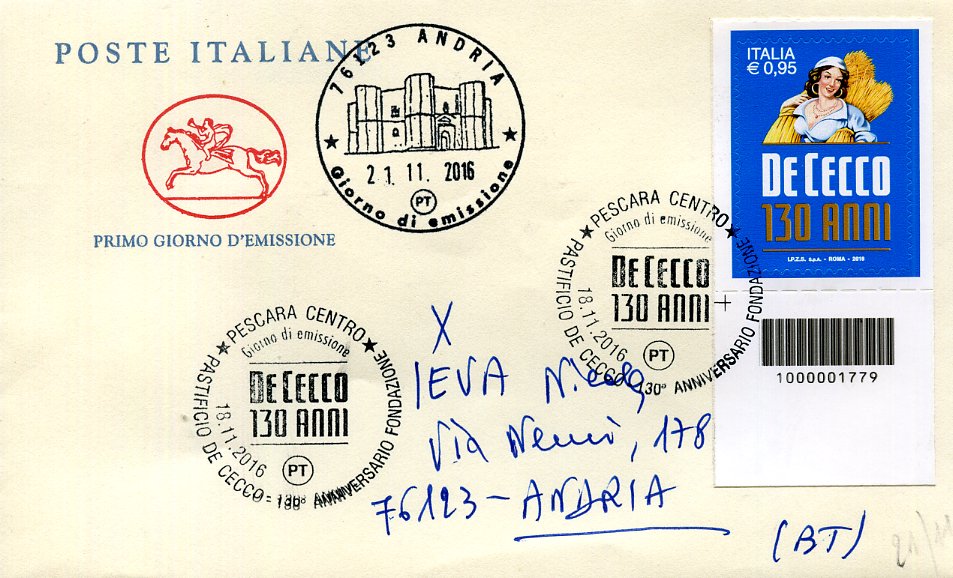 POSTE ITALIANE
PRIMO GIORNO D'EMISSIONE
76123 ANDRIA
21.11.2016
PT
Giorno di emissione
ITALIA
€ 0,95
DE CECCO
130 ANNI
I.P.Z.S. S.p.A. - ROMA - 2016
1000001779
PESCARA CENTRO
Giorno di emissione
DE CECCO
130 ANNI
18.11.2016
PT
PASTIFICIO DE CECCO 130° ANNIVERSARIO FONDAZIONE
PESCARA CENTRO
Giorno di emissione
DE CECCO
130 ANNI
18.11.2016
PT
PASTIFICIO DE CECCO - 130° ANNIVERSARIO FONDAZIONE
X
IEVA Nicola
Via Nenni, 178
76123 - ANDRIA
(BT)
21/11